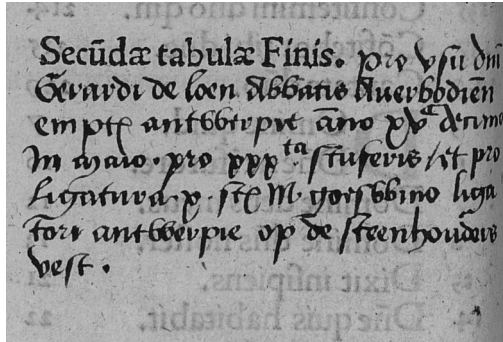 Secūdæ tabulæ Finis. pro vsu dm̄
Gerardi de loen Abbatis Auerbodiēn̄
empt antwerpie āno xvᶜ decimo
In maio . pro xxxᵗᵃ stuferis / et pro
Ligatura . x . st M goeswino liga
tori antwerpie op de steenhouders
vest .